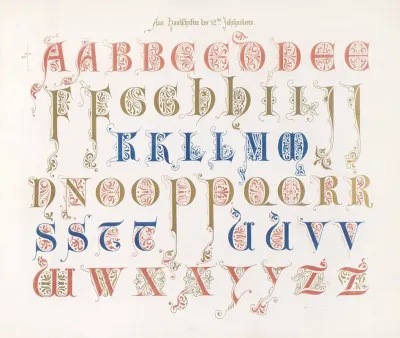 Aus Handschriften des 12ten Jahrhunderts.
A A B B C C D D E E
F F G G H H I I J J
K K L L M M
N N O O P P Q Q R R
S S T T U U V V
W W X X Y Y Z Z